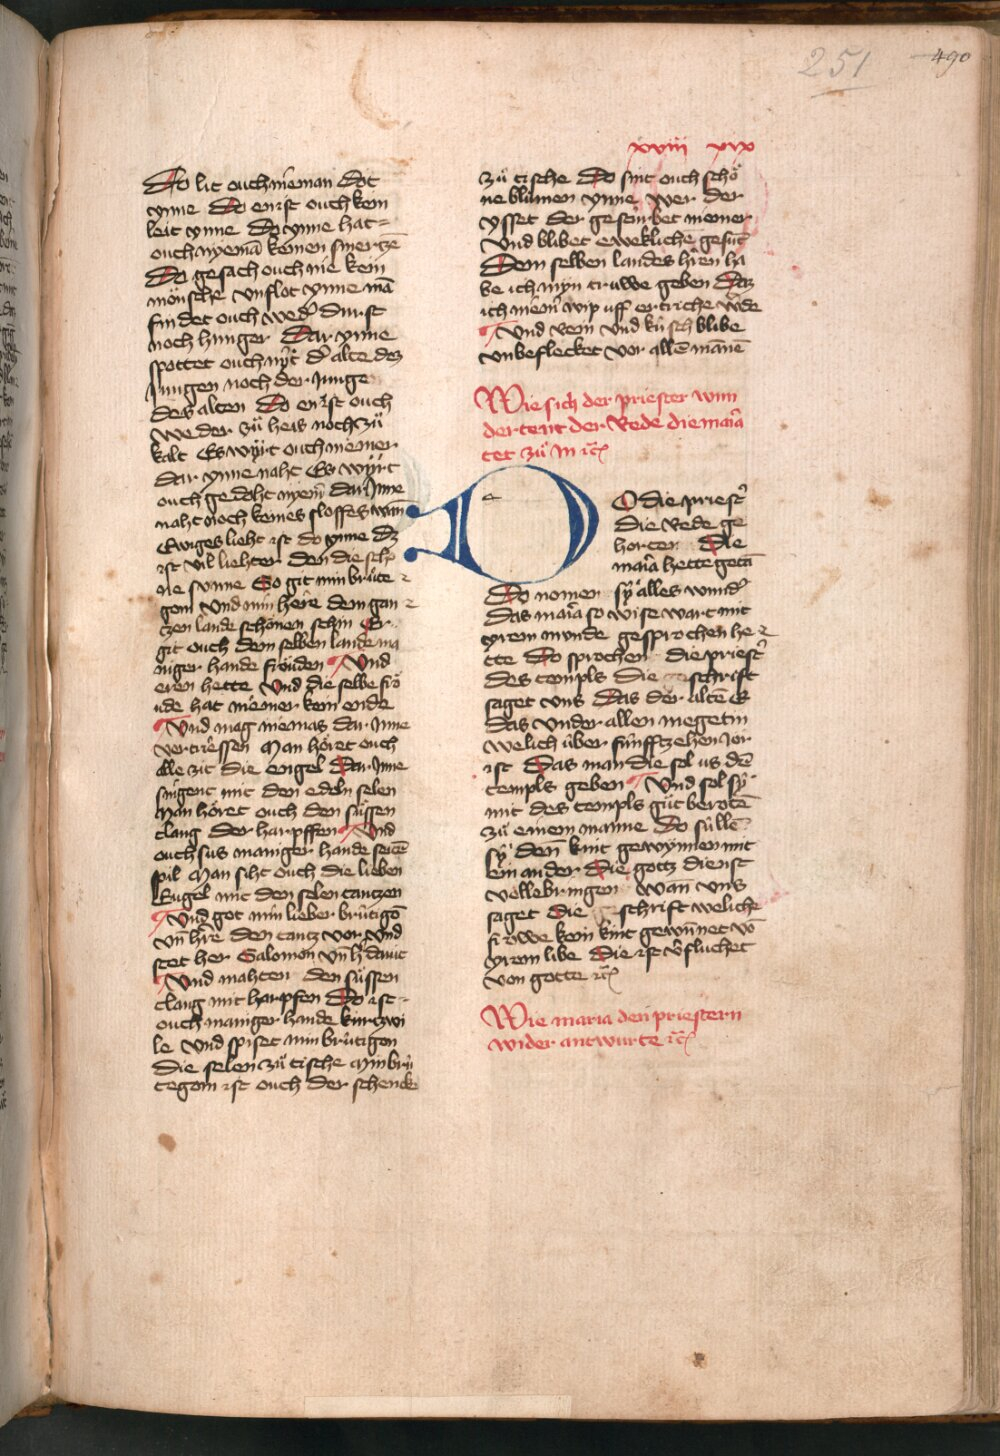 251
490
xviii xix
Do lit ouch nieman dot
ynne Do en ist ouch kein
leit ynne Do ynne hat
ouch nyemā keinen smertzē
Do gesach ouch nie kein
mönsche vnflot ynne mā
findet ouch wed durst
noch hunger Dar ynne
spottet ouch nyt d alte dez
Jungen noch der Junge
des alten Do en ist ouch
weder zů heis noch zů
kalt Es wyrt ouch niemer
dar ynne naht Es wyrt
ouch gedoht nyem dar Jnne
naht noch keines sloffes wan
Ewiges lieht ist do ynne Dz
ist vil liehter den die schö
ne sunne So git min brúte
gom Vnd min here dem gan
tzen lande schönen schin Er
git ouch dem selben lande ma
niger hande fröuden Vnd
eren hette Vnd die selbe frö
ude hat niemer kein ende
Vnd mag niemas dar Jnne
vertriessen Man höret ouch
alle zit die engel Dar Jnne
singent mit den edeln selen
Man höret ouch den sůssen
clang der harpffen Vnd
ouch sus maniger hande seitē
spil Man siht ouch die lieben
Engel mit den selen tantzen
Vnd got min lieber brútigō
vn hre den tantz vor Vnd
stet her Salomon vn h dauit
Vnd mahten den sůssen
clang mit harpfen Do ist
ouch maniger hande kurtzwi
le Vnd spiset min brútigon
die selen zů tische Min brú
tegom ist ouch der schencke
zů tische Do sint ouch schö
ne blůmen ynne wer der
ysset der gesturbet niemer
Vnd blibet eweklichē gesunt
Dem selben landes hren ha
be ich myn truwe geben Daz
ich niem wip uff ertriche wde
Vnd rein Vnd kúsch blibe
vnbeflecket vor allē mannē
Wie sich der priester wun
dertent der Rede die maia
tet zů in rc
DO die priest
die Rede ge
horten Die
maia hette getā
Do nomen sy alles wund
das maia so wise wart mit
yrem munde gesprochen he
tte Do sprochen die priest
des tempels die schrift
saget vns Das der altē e
das vnder allen megetin
welich úber fúnfftzehen Jor
ist Das man die sol us dē
tempels geben Vnd sol sy
mit des tempels gůt berotē
zů einem manne Do súllē
sy denn kint gewynnen mit
ein ander Die gottz dienst
vollebringen Wan vns
saget die schrift weliche
frowe kein kint gewnnet vō
yrem libe Die ist vfluchet
von gotte rc
Wie maria den priestern
wider antwurte rc